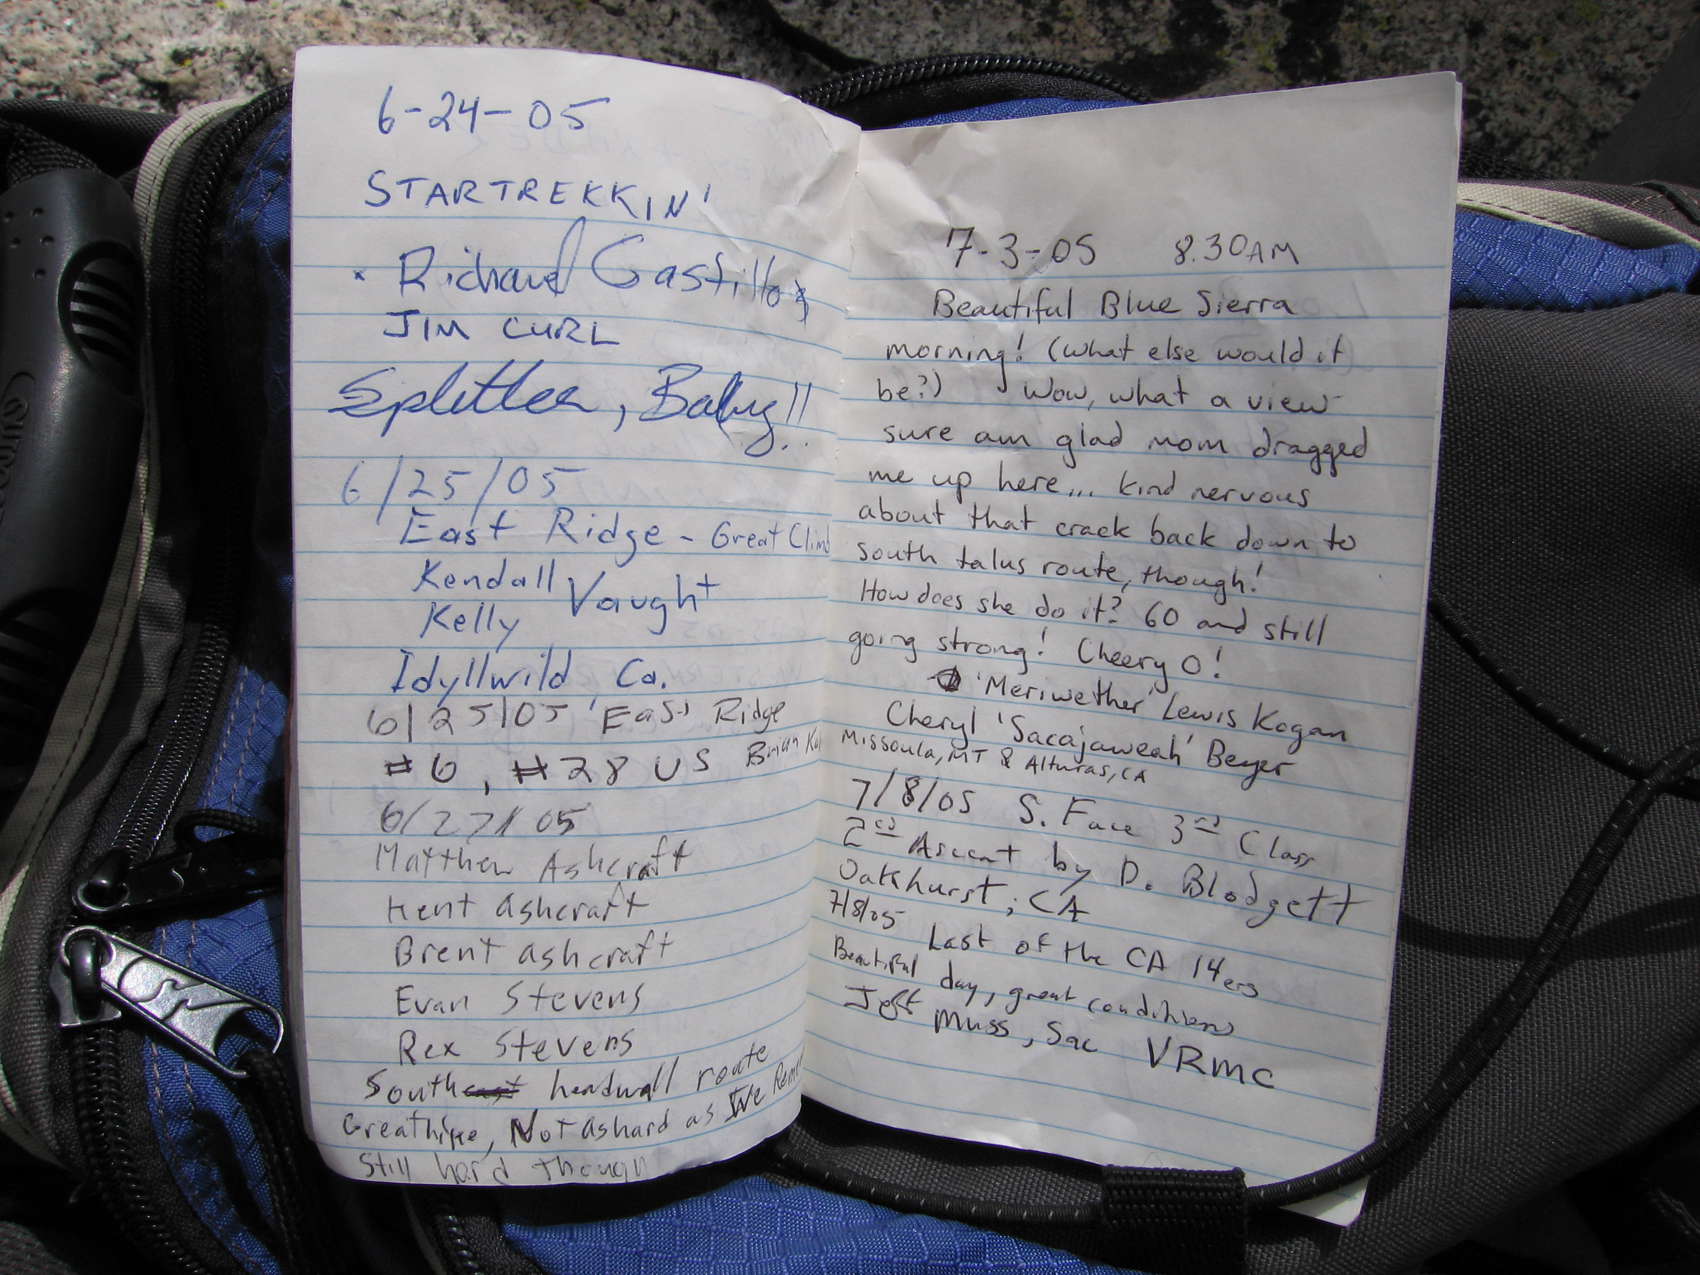 6-24-05
STARTREKKIN'
Richard Castillo
JIM CURL
Splitter, Baby!!
6/25/05
East Ridge - Great Climb
Kendall
Vaught
Kelly
Idyllwild Ca.
6/25/05 East Ridge
#6, #28 US Brian
6/27/05
Matthew Ashcraft
Kent Ashcraft
Brent Ashcraft
Evan Stevens
Rex Stevens
South headwall route
Great hike, Not as hard as We
Still hard though
7-3-05 8.30AM
Beautiful Blue Sierra
morning! (what else would it
be?) Wow, what a view
sure am glad mom dragged
me up here... kind nervous
about that crack back down to
south talus route, though!
How does she do it? 60 and still
going strong! Cheery O!
'Meriwether' Lewis Kogan
Cheryl 'Sacajaweah' Beyer
Missoula, MT & Alturas, CA
7/8/05 S. Face 3rd Class
2nd Ascent by D. Blodgett
Oakhurst, CA
7/8/05 Last of the CA 14ers
Beautiful day, great conditions
Jeff Muss, Sac VRMC